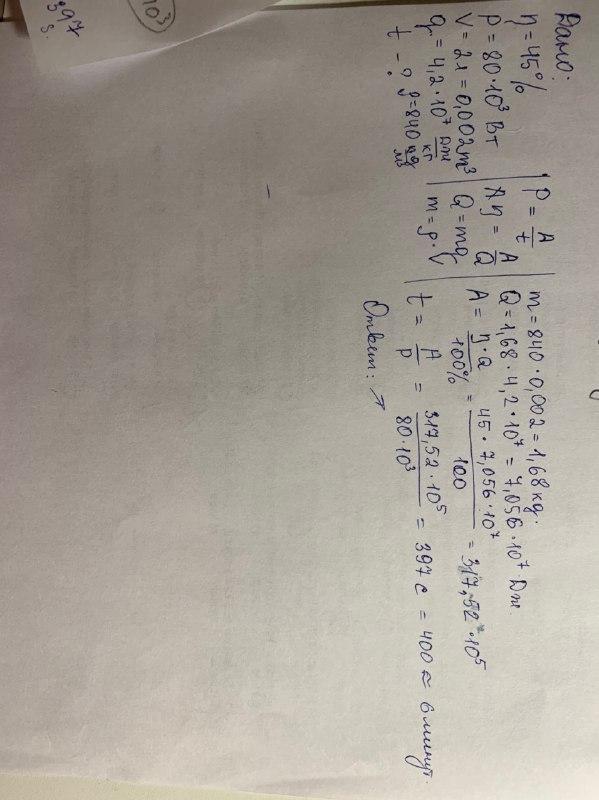 Дано:
η = 45%
P = 80·10³ Вт
V = 2л = 0,002м³
q = 4,2·10⁷ Дж/кг
t - ? ρ=840 кг/м³
P = A/t
Aη = A/Q
Q = mq
m = ρ·V
m = 840·0,002 = 1,68 kg.
Q = 1,68·4,2·10⁷ = 7,056·10⁷ Дж.
A = η·Q/100% = 45·7,056·10⁷/100 = 317,52·10⁵
t = A/P = 317,52·10⁵/80·10³ = 397 с = 400 ≈ 6 минут.
Ответ: ↗
10³
397
3.